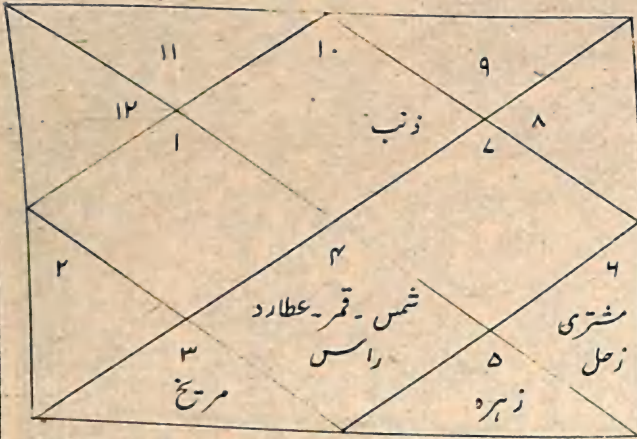 ۱۱
۱۰
۹
۱۲
۱
ذنب
۷
۸
۲
۴
۶
شمس ۔ قمر ۔ عطارد
راس
مشتری
زحل
۳
مریخ
۵
زہرہ